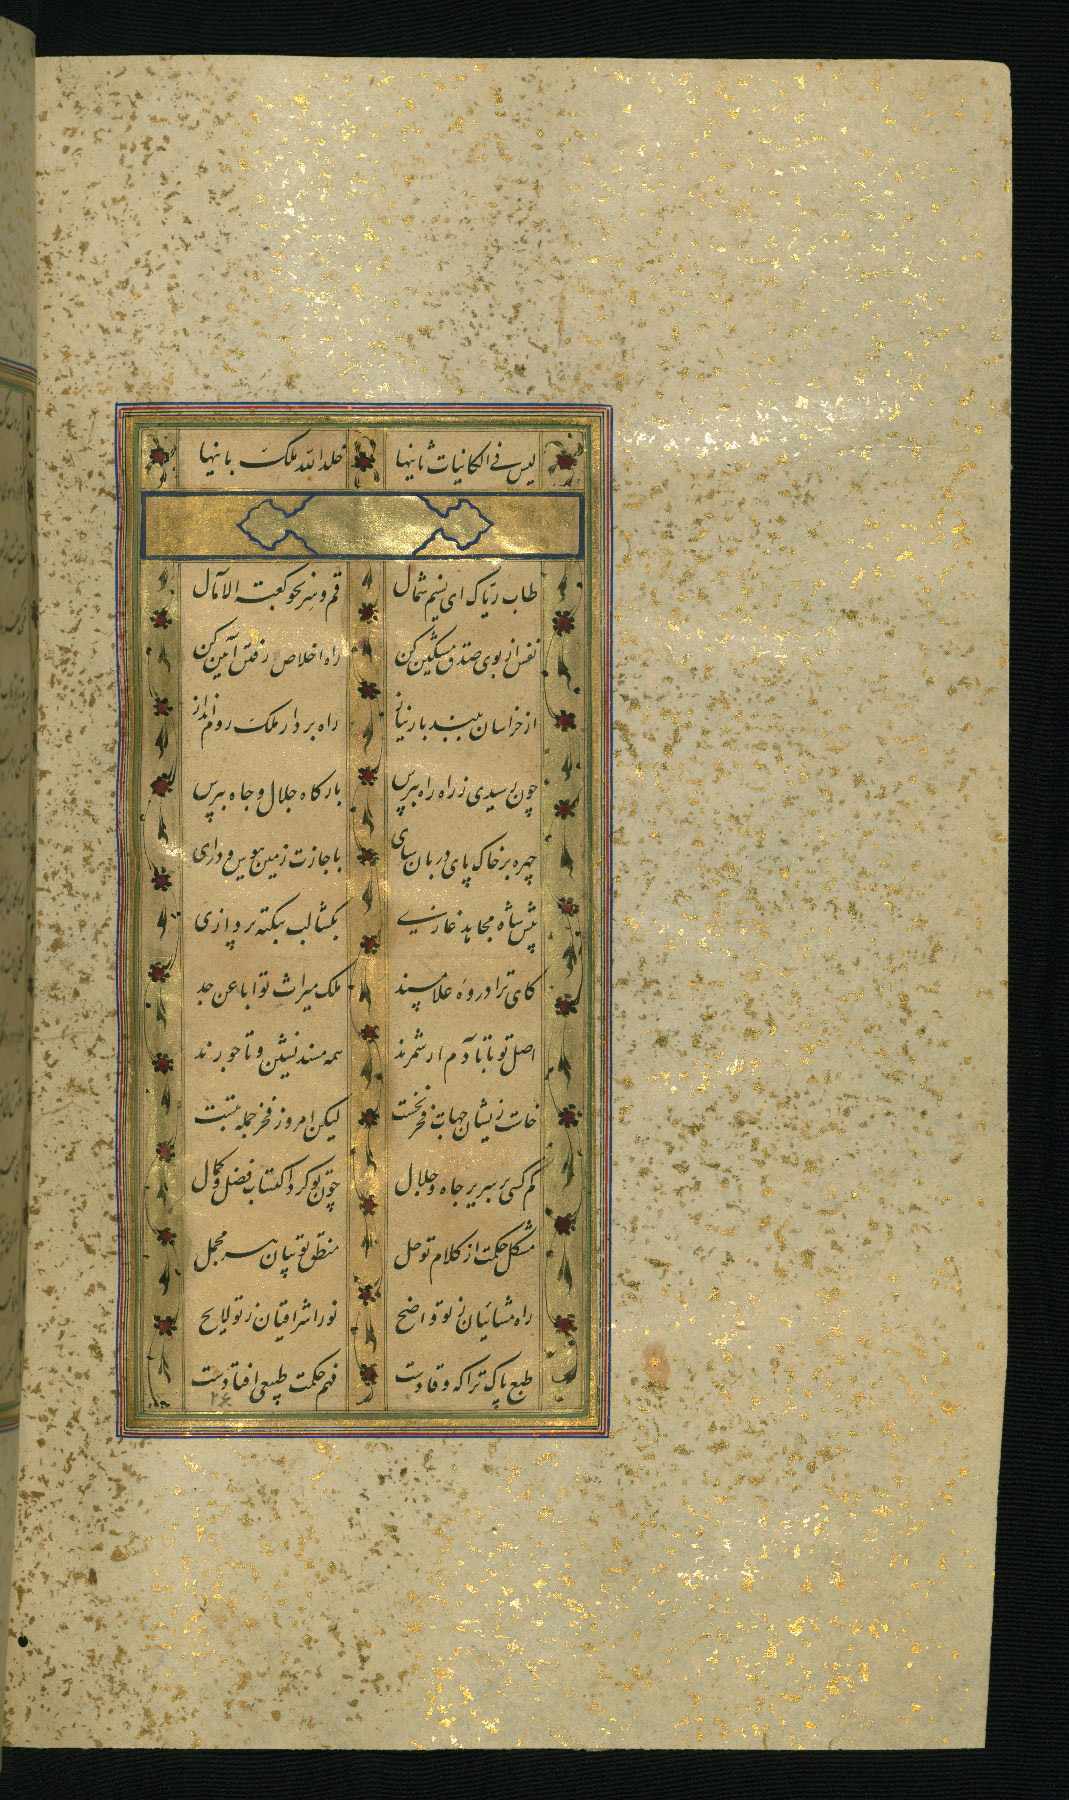 لیس فی الکانیات ثانیها خلد الله ملک بانیها
طاب ریاک ای نسیم شمال قم و سر نحو کعبة الآمال
نفس از بوی صدق مشکین کن راه اخلاص رفتن آیین کن
از خراسان ببند بار نیاز راه بردار ملک روم انداز
چون رسیدی ز راه راه بپرس بارگاه جلال و جاه بپرس
چهره بر خاک پای دربان سای باجازت زمین ببوس و درای
پیش شاه مجاهد غازی بگشا لب بنکته پردازی
کای ترا در وه علا مسند ملک میراث تو ابا عن جد
اصل تو تا بآدم ار شمرند همه مسند نشین و تاجورند
خاست زیشان جهات فخر نخست لیکن امروز فخر جمله بتست
کم کسی بر سریر جاه و جلال چون تو کرد اکتساب فضل و کمال
مشکل حکمت از کلام تو حل منطق تو بیان هر مجمل
راه مشائیان ز تو واضح نور اشراقیان ز تو لایح
طبع پاک ترا که وقادست فهم حکمت طبیعی افتادست